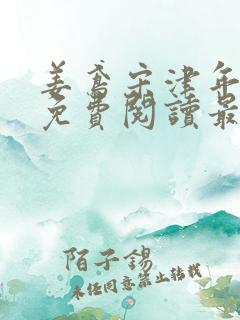 姜鸢宋津年
免費閱讀最
陌子錫
未经同意禁止转载